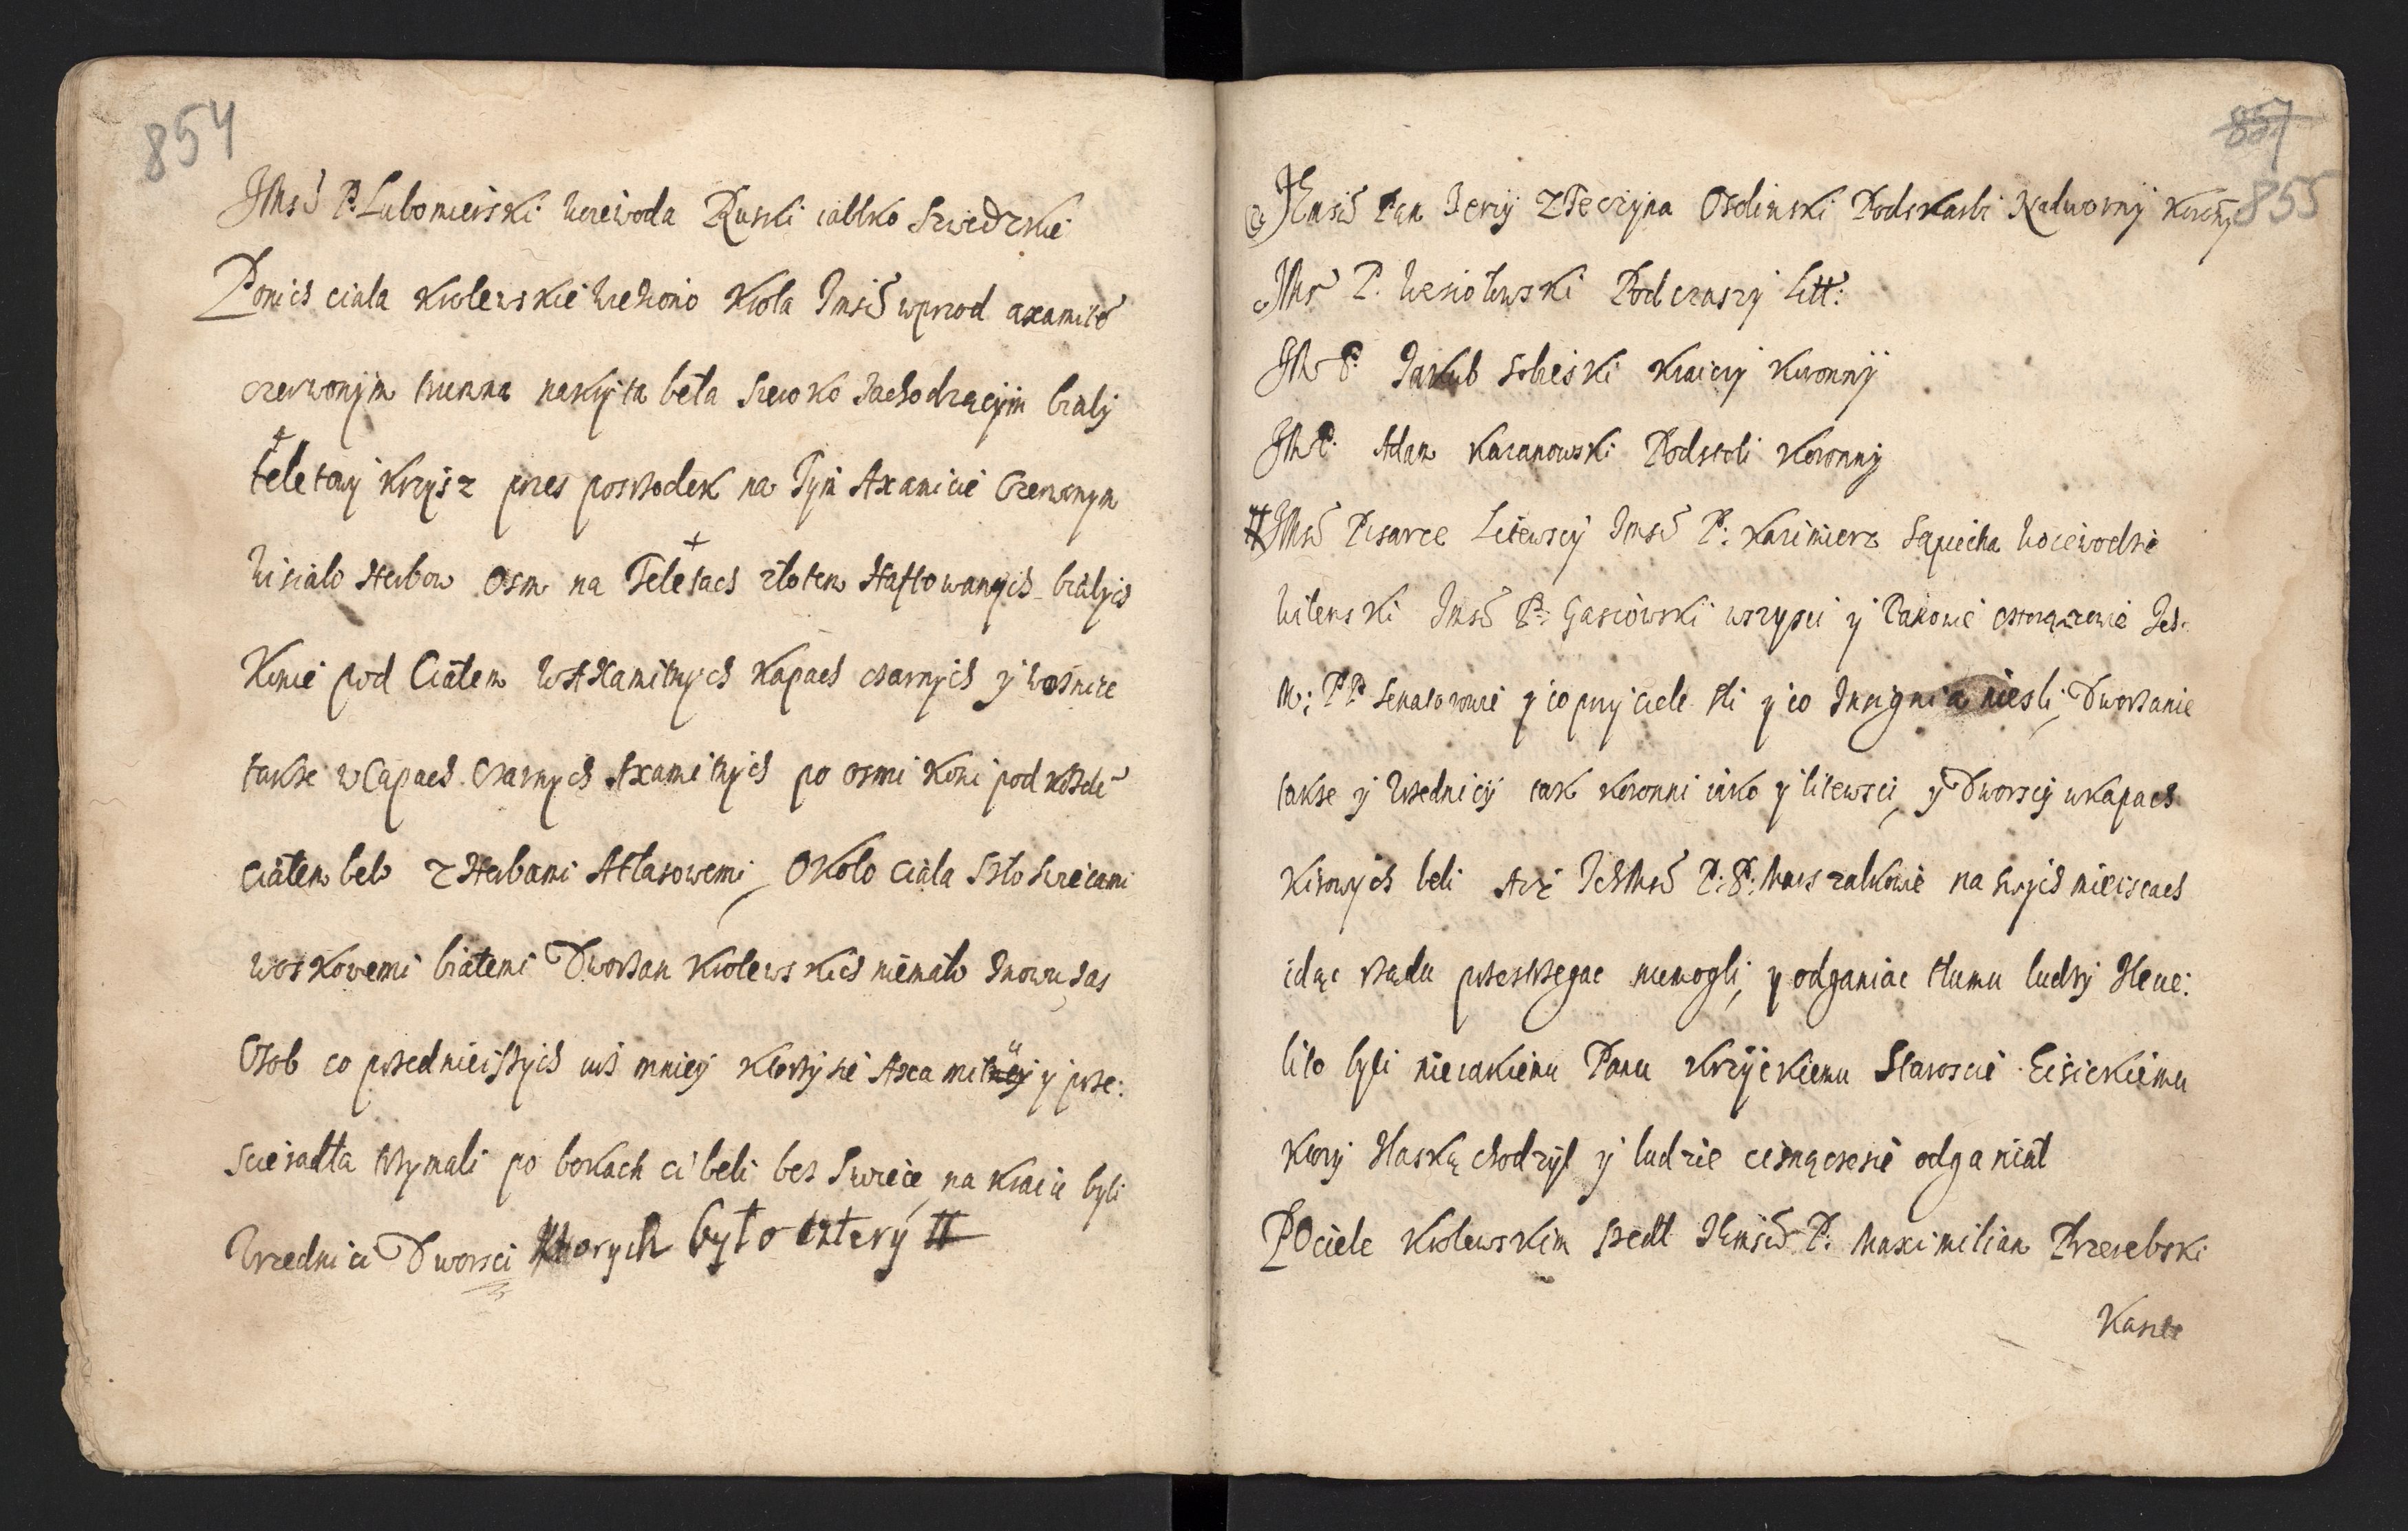 854
JMsć P. Lubomierski Woiewoda Ruski iabłko Szwedzkie
Ponich ciala Krolewskie wieziono Krola Jmsci wprzod axamite
czerwonym trunna nakryta beła szeroko zachodzącym biały
teletowy krzysz przes posrzodek na Tym Axamicie Czerwonym
Wisialo Herbow Osm na Teletach złotem Haftowanych białych
Konie pod Ciałem w Axamitnych Kapach czarnych y woznice
takze w Capach Czarnych Axamitnych po osmi koni pod kozde
ciałem beło z Herbami Atlasowemi, Około Ciala szło swiecami
woskowemi białemi Dworzan Krolewskich niemało znowu zas
Osob co przednieiszych wiż mniey ktorzy sie Axamitney y prze:
scieradła trzymali po bokach ci beli bes swiece, na kraiu byli
Urzednici Dworsci Ktorych było cztery #
857
855
Jmsć Pan Jerzy z Teczyna Osolinski Podskarbi Nadworny Koronny
JMs P. Wesiołowski Podczaszy Litt:
JM P. Jakub Sobieski Kraiczy Koronny
JM P. Adam Kazanowski Podstoli Koronny
# JMsć Pisarze Litewscy Jmsć P. Kazimierz Sapieha Woiewodzie
Wilenski Jmsć P. Gasiowski wszysci y Panowie Chorązowie Ich
M: PP Senatorowie y co przy ciele szli y co Insignia niesli, Dworzanie
takze y Urzednicy tak koronni iako y litewsci, y Dworscy w kapach
kirowych beli Aże IchMsć P: P: Marszalkowie na swych mieiscach
idąc rządu przestrzegac niemogli, y odganiac tłumu ludzy Zleue:
lito byli nieiakiemu Panu Krzyckiemu Staroscie Eisickiemu
ktory z laską chodzył y ludzie cisnącesie odganiał
PO ciele Krolewskim szedł Jemsć P. Maximilian Przerebski
Kaszte